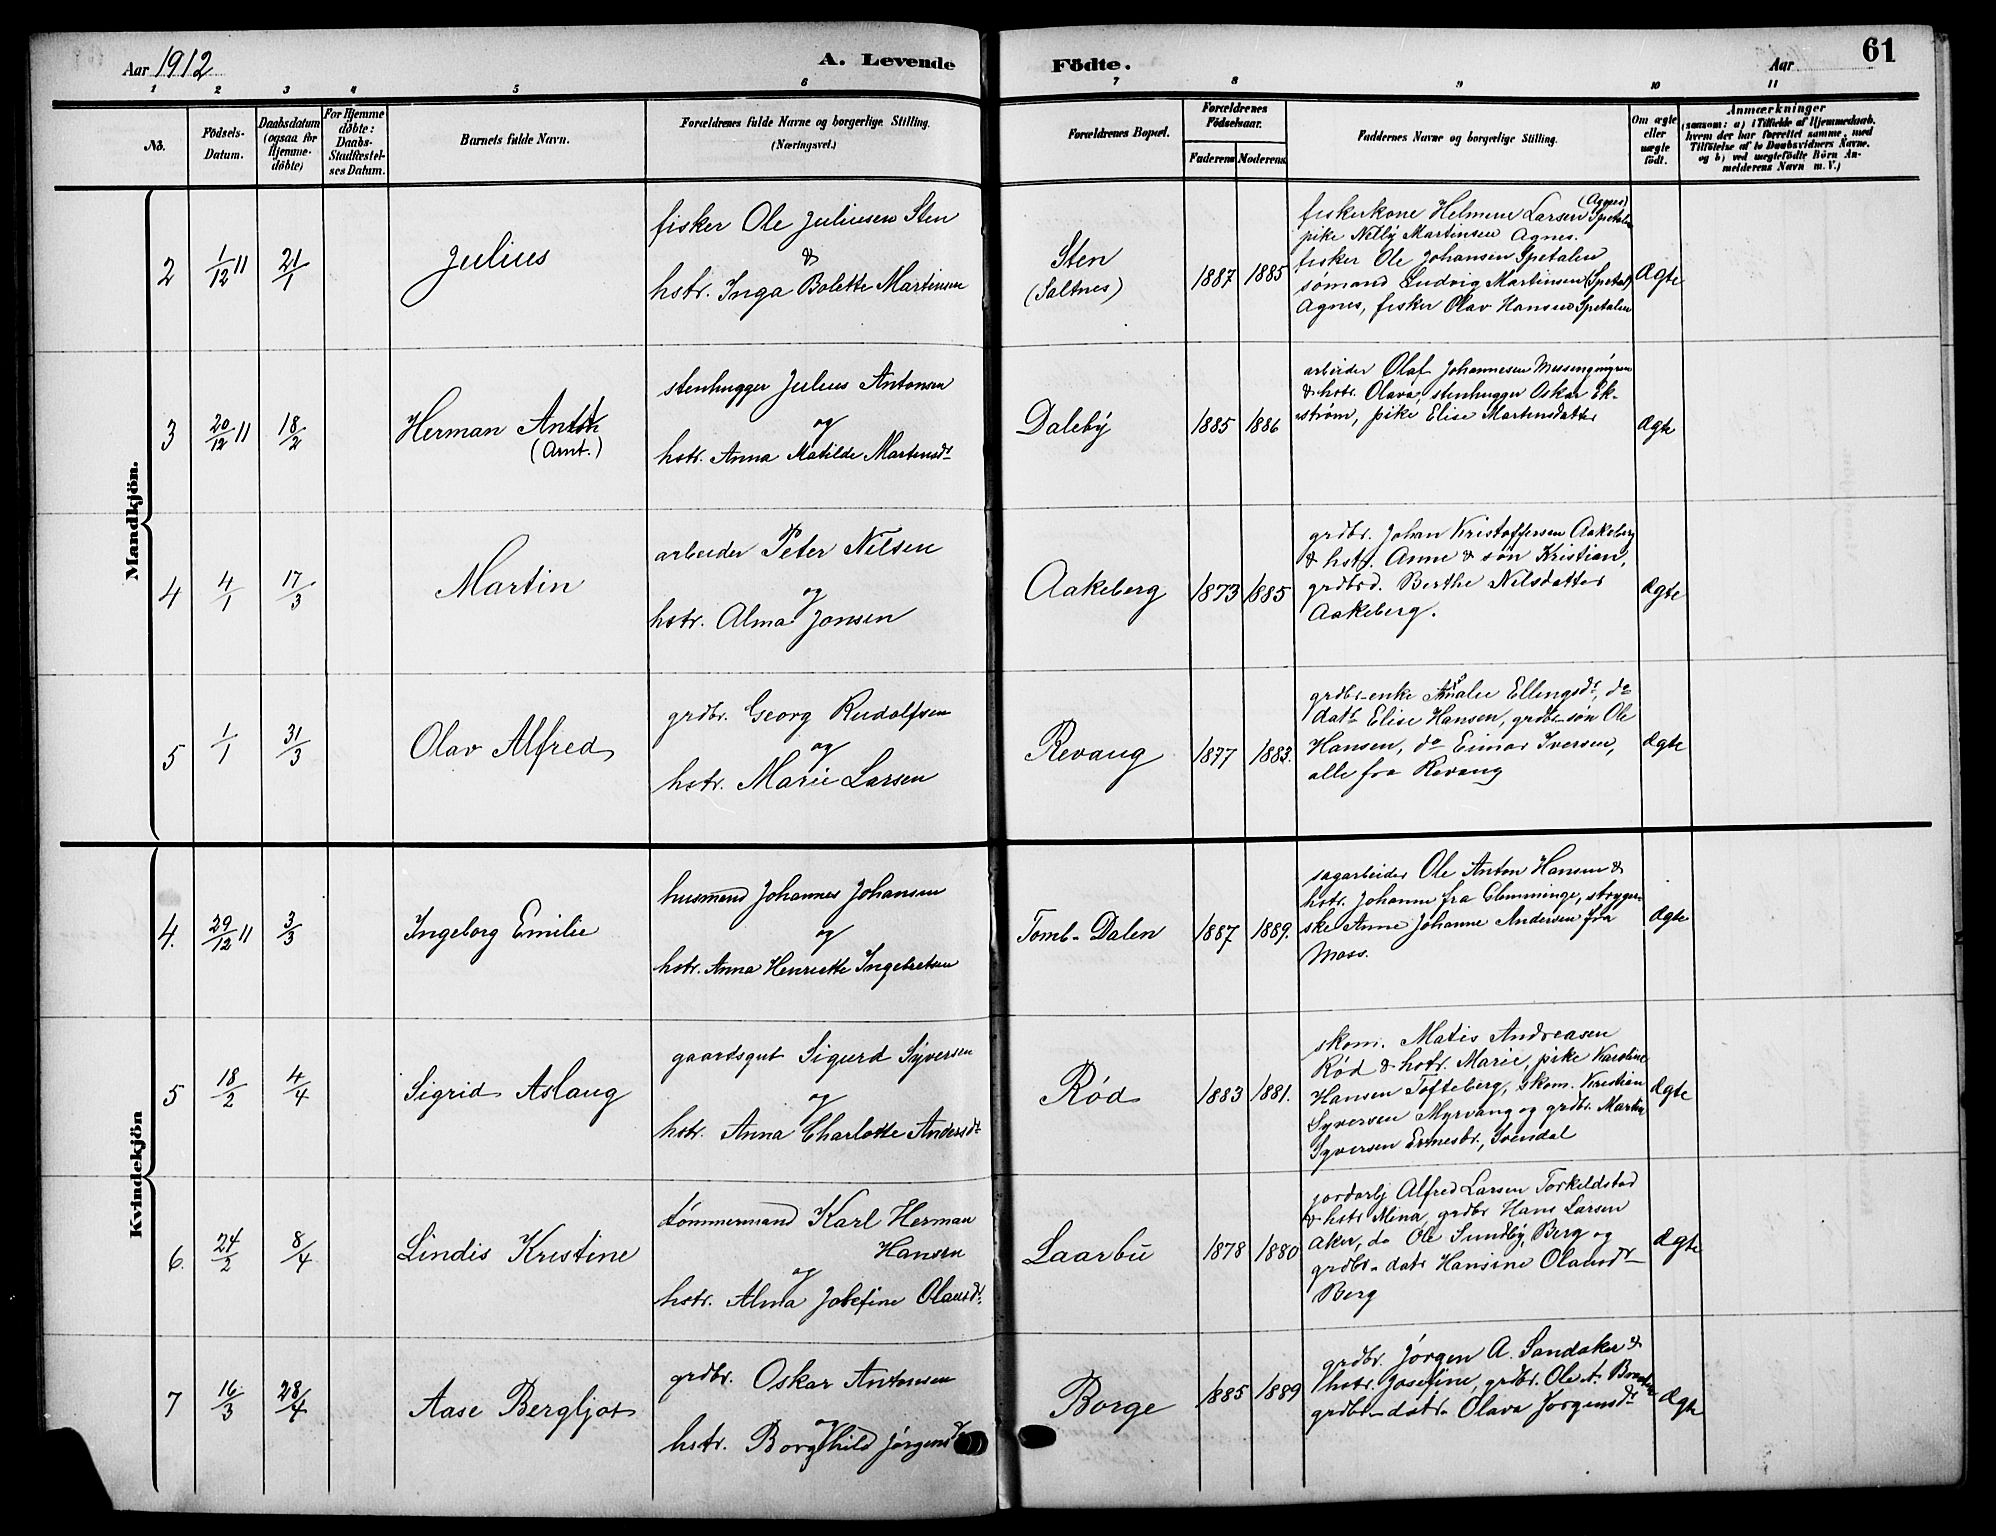 Aar 1912
A. Levende Födte.
Aar
61
1 2 3 4 5 6 7 8 9 10 11
No.
Födsels-Datum.
Daabsdatum (ogsaa for Hjemme-döbte)
For Hjemme döbte: Daabs-Stadfæstel-ses Datum.
Barnets fulde Navn.
Forældrenes fulde Navne og borgerlige Stilling. (Næringsvei.)
Forældrenes Bopæl.
Forældrenes Födselsaar.
Faderens Moderens
Faddernes Navne og borgerlige Stilling.
Om ægte eller uægte födt.
Anmærkninger
(saasom: a) i Tilfælde af Hjemmedaab, hvem der har forrettet samme, med Tilföielse af to Daabsvidners Navne. og b) ved uægtefödte Börn An-melderens Navn m. V.)
Mandkjön.
2
1/12 11
21/1
Julius
fisker Ole Juliusen Sten
&
hstr. Inga Bolette Martinsen
Sten
(Saltnes)
1887 1885
fiskerkone Helmine Larsen Spetalen
(Agnes)
pike Nelly Martinsen Agnes.
fisker Ole Johansen Spetalen
sømand Ludvig Martinsen (Spetal)
Agnes, fisker Olav Hansen Spetalen
Ægte
3
20/12 11
18/2
Herman
(Arnt.)
stenhugger Julius Antonsen
og
hstr. Anna Matilde Martinsdr
Daleby
1885 1886
arbeider Olaf Johannesen
& hstr. Olava, stenhugger Oskar Ek-
strøm, pike Elise Martinsdatter
Ægte
4
4/1
17/3
Martin
arbeider Peter Nilsen
og
hstr. Alma Jonsen
Aakeberg
1873 1885
grdbr. Johan Kristoffersen Aakeberg
& hstr. Anne & søn Kristian,
grdbrd. Berthe Nilsdatter
Aakeberg.
Ægte
5
1/1
31/3
Olav Alfred
grdbr. Georg Rudolfsen
og
hstr. Marie Larsen
Revaug
1877 1883.
grdbr-enke Amalie Ellingsdr, do
datr Elise Hansen, grdbr-søn Ole
Hansen, do Eimar Iversen,
alle fra Revaug
Ægte
Kvindekjön
4.
29/12 11
3/3
Ingeborg Emilie
husmand Johannes Johansen
og
hstr. Anna Henriette Ingebretsen
Tomb-Dalen
1887 1889.
sagarbeider Ole Anton Hansen &
hstr. Johanne fra Glemminge, stryger-
ske Anne Johanne Andersen fra
Moss.
Ægte
5
18/2
4/4
Sigrid Aslaug
gaardsgut Sigurd Syversen
og
hstr. Anna Charlotte Andersdr
Rød
1883 1881.
skom. Matis Andreasen
Rød & hstr. Marie, pike Karoline
Hansen Tofteberg, skom. Kristian
Syversen Myrvang og grdbr. Martin
Syversen Ermesbr., Svendal
Ægte
6.
24/2
8/4
Lindis Kristine
tømmermand Karl Herman
Hansen
og
hstr. Alma Josefine Olausdr.
Laarbu
1878 1880
jordarbj Alfred Larsen Torkeldstad
& hstr Mina, grdbr Hans Larsen
Aker, do Ole Sundby, Berg og
grdbr-datr Hansine Olausdr
Berg
Ægte
7
16/3
28/4
Aase Bergljot
grdbr. Oskar Antonsen
og
hstr. Borghild Jørgensdr
Borge
1885 1889
grdbr. Jørgen A. Sandaker &
hstr. Josefine, grdbr. Ole A.
grdbr-datr. Olava Jørgensdr
Ægte